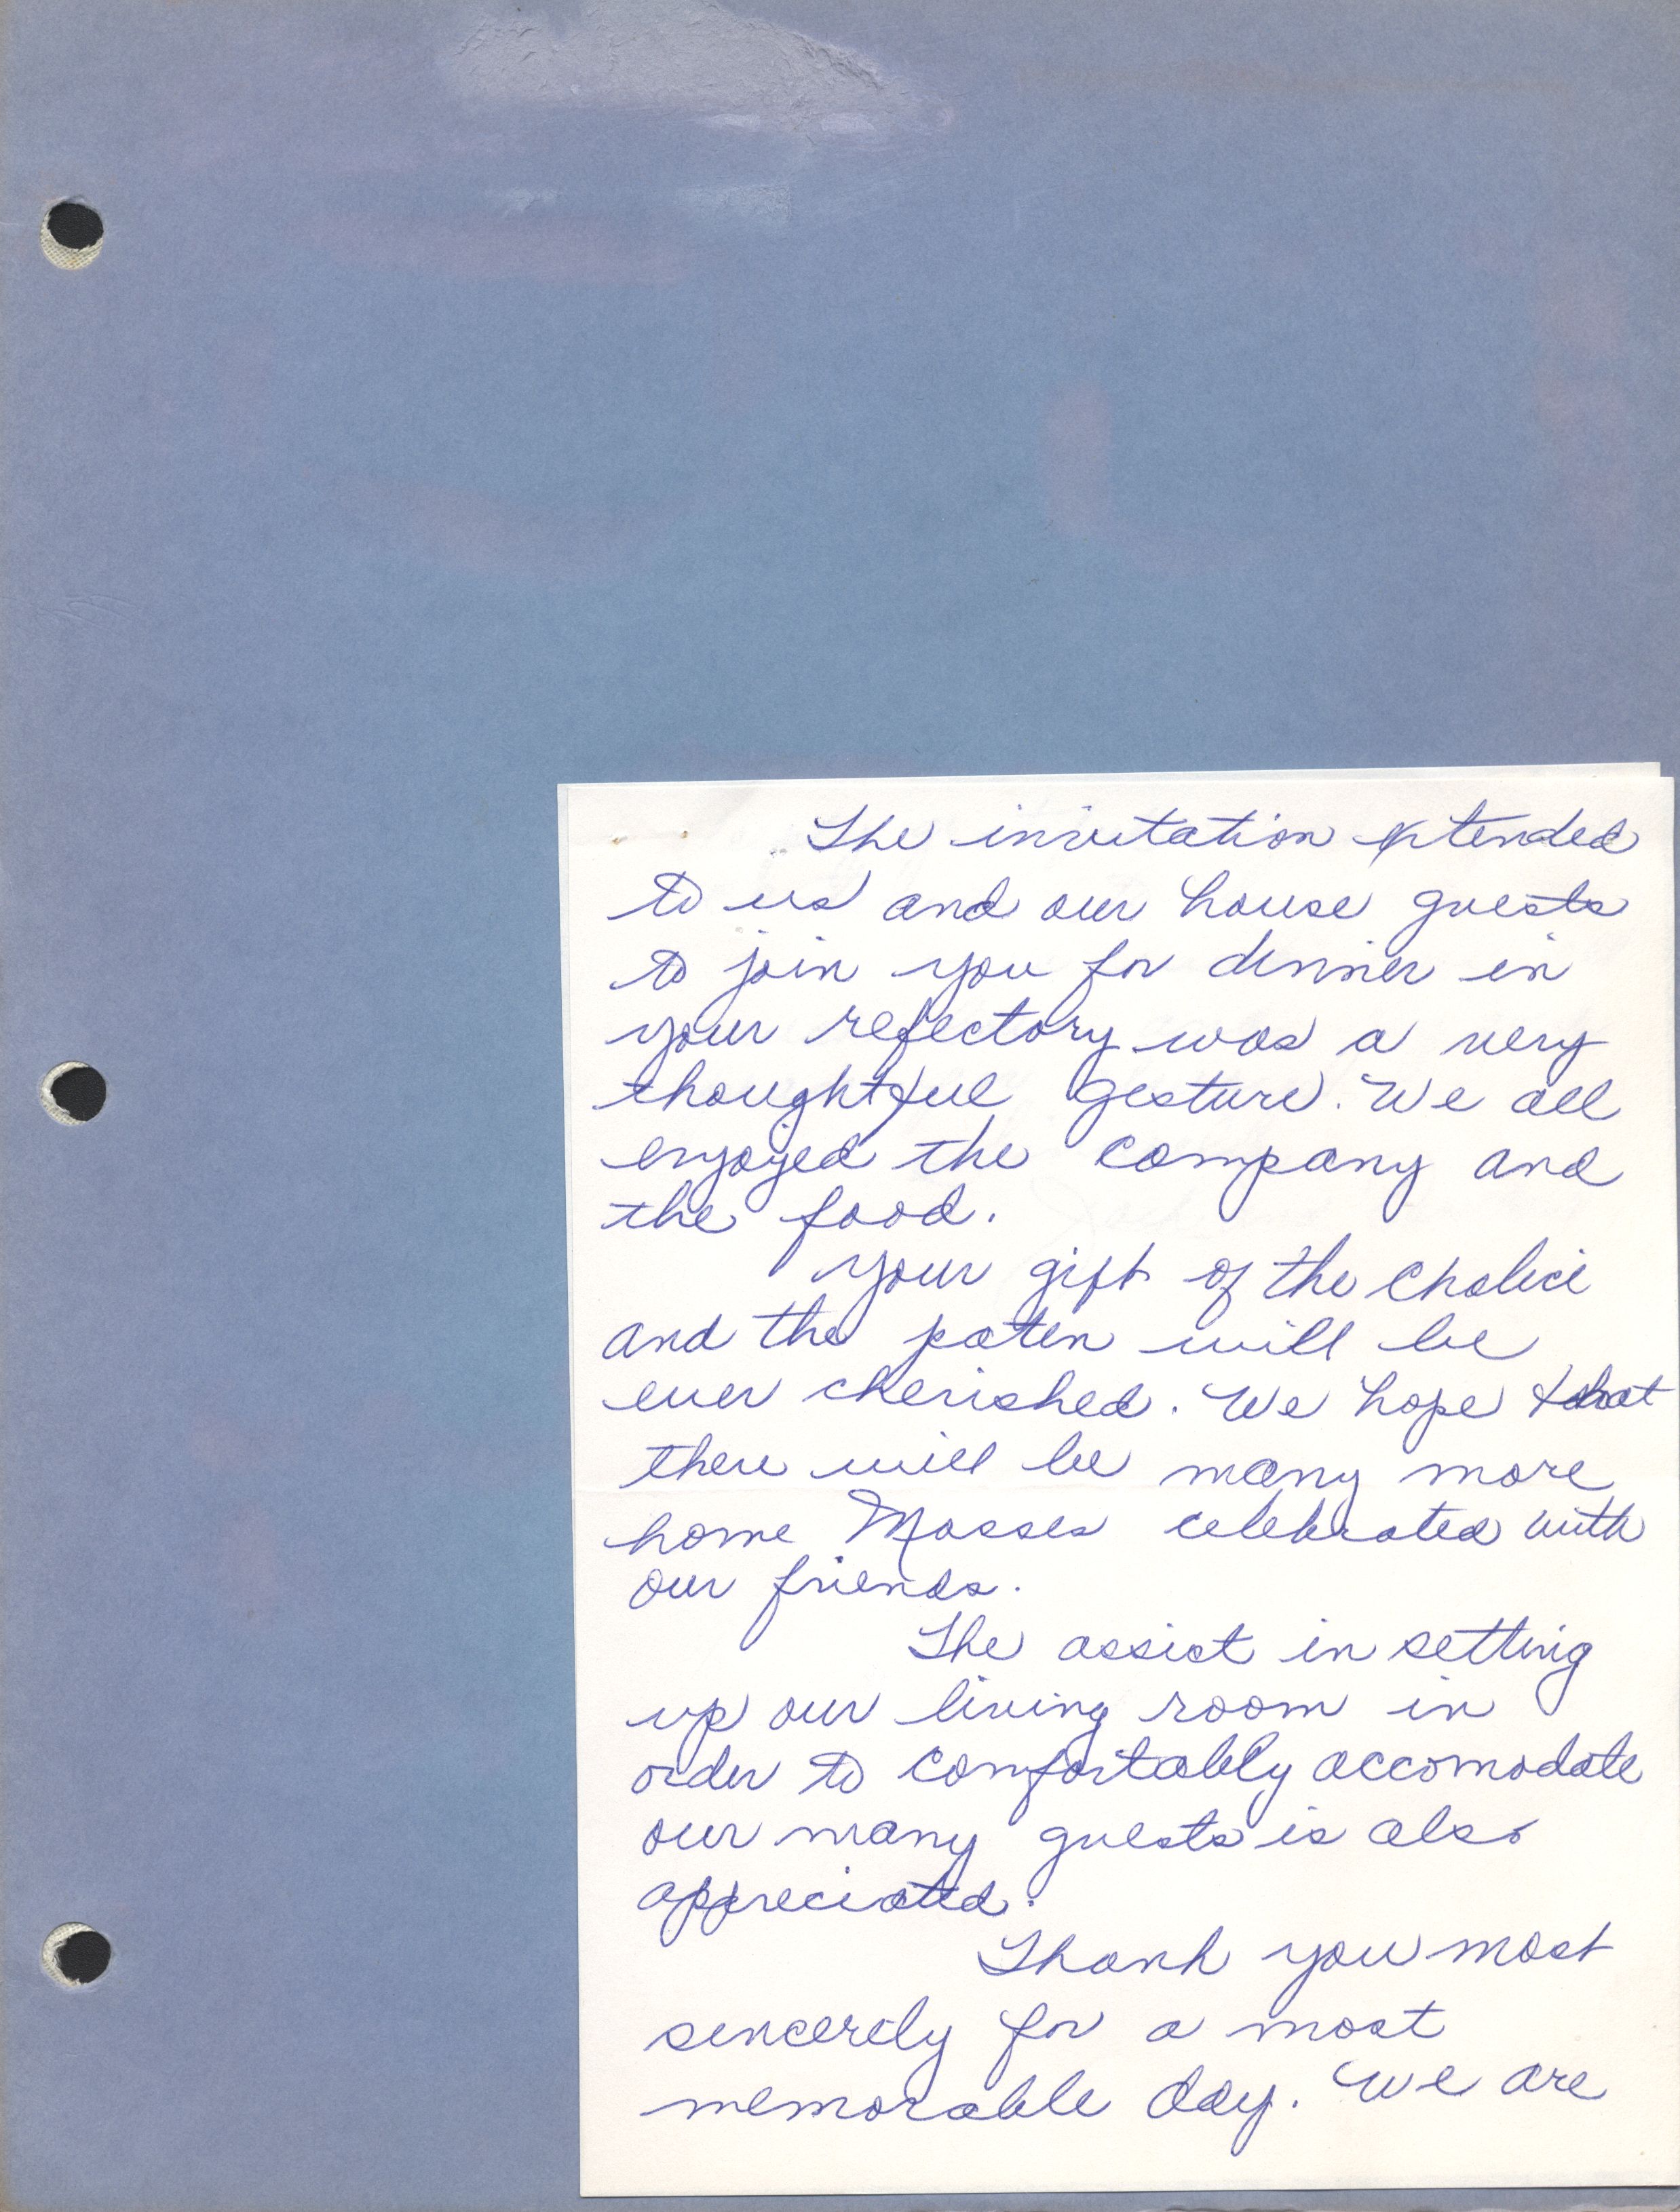 The invitation extended
to us and our house guests
to join you for dinner in
your refectory was a very
thoughtful gesture. We all
enjoyed the company and
the food.
Your gift of the chalice
and the paten will be
ever cherished. We hope that
there will be many more
home Masses celebrated with
our friends.
The assist in setting
up our living room in
order to comfortably accomodate
our many guests is also
appreciated.
Thank you most
sincerely for a most
memorable day. We are